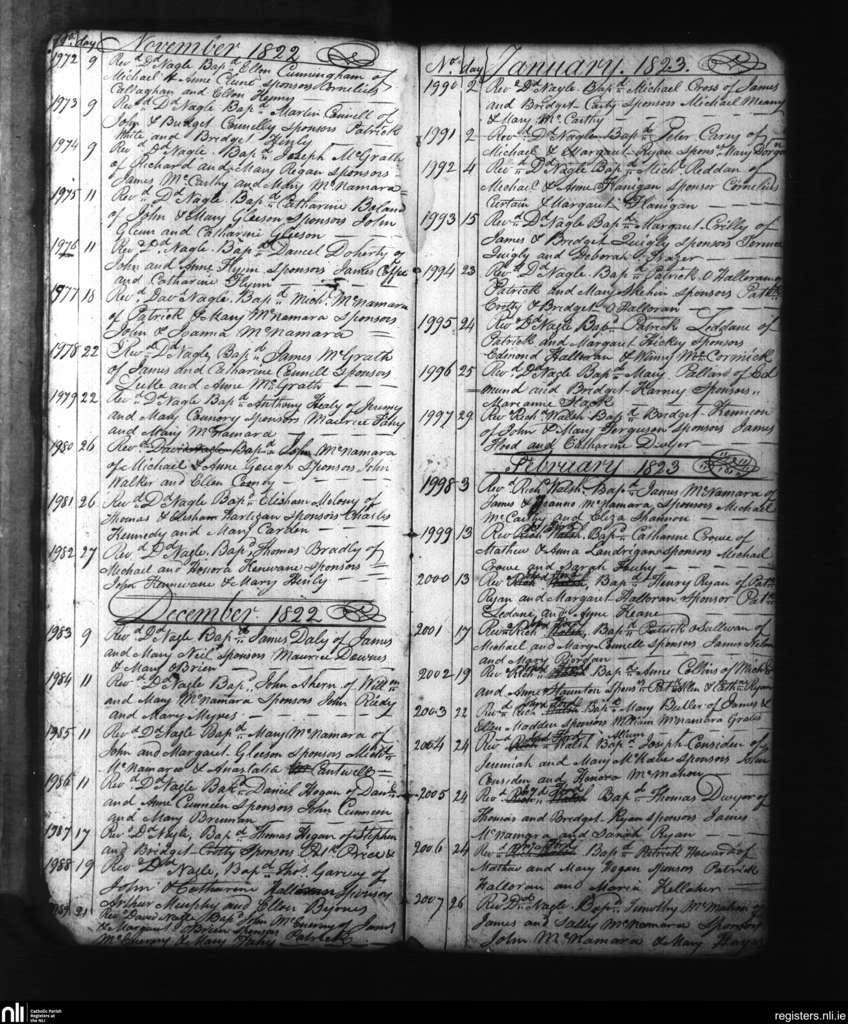 No. day November 1822
1972 9 Revd. Dd. Nagle Bapd. Ellen Cunningham of
Michael & Anne Clune sponsors Cornelius
Callaghan and Ellen
1973 9 Revd. Dd. Nagle Bapd. Martin Connell of
John & Bridget Connelly Sponsors Patrick
White and Bridget Henly
1974 9 Revd. Dd. Nagle. Bapd. Joseph McGrath
of Richard and Mary Regan Sponsors
James McCarthy and Mary McNamara
1975 11 Revd. Dd. Nagle Bapd. Catharine Boland
of John & Mary Gleeson Sponsors John
Glenn and Catharine Gleeson
1976 11 Revd. Dd. Nagle. Bapd. Daniel Doherty of
John and Anne Flynn Sponsors James
and Catharine Flynn
1977 18 Revd. Davd. Nagle. Bapd. Michl. McNamara
of Patrick & Mary McNamara Sponsors
John & McNamara
1978 22 Revd. Dd. Nagle, Bapd. James McGrath
of James and Catharine Connell Sponsors
and Anne McGrath
1979 22 Revd. Dd. Nagle Bapd. Anthony Healy of Jeremy
and Mary Connory Sponsors Maurice Fahy
and Mary McNamara
1980 26 Revd. David Nagle Bapd. John McNamara
of Michael & Anne Gough Sponsors John
Walker and Ellen Conroy
1981 26 Revd. Dd. Nagle Bapd. Elisham Molony of
Thomas & Elisham Hartigan Sponsors Charles
Kennedy and Mary Carden
1982 27 Revd. Dd. Nagle, Bapd. Thomas Bradly of
Michael and Honora Renwane Sponsors
John Rennewane & Mary Henly
December 1822
1983 9 Revd. Dd. Nagle Bapd. James Daly of James
and Mary Neil Sponsors Maurice
& Mary O'Brien
1984 11 Revd. Dd. Nagle Bapd. John Ahern of Willm.
and Mary McNamara Sponsors John Reedy
and Mary Mynes
1985 11 Revd. Dd. Nagle Bapd. Mary McNamara of
John and Margaret Gleeson Sponsors Michl.
McNamara & Anastatia Cantwell
1986 11 Revd. Dd. Nagle Bapd. Daniel Hogan of Danl.
and Anne Cunneen Sponsors John Cunneen
and Mary Brennan
1987 17 Revd. Dd. Nagle, Bapd. Thomas Hogan of Stephen
and Bridget Crotty Sponsors Patk. Price &
1988 19 Revd. Dd. Nagle, Bapd. Thos. Garvey of
John & Catharine Halloran Sponsors
Arthur Murphy and Ellen Byrnes
1989 21 Revd. David Nagle Bapd. John McEnerny of James
& Margaret O'Brien Sponsors Patrick
McEnerny & Mary Fahy
No. day January. 1823.
1990 2 Revd. Dd. Nagle. Bapd. Michael Cross of James
and Bridget Carty Sponsors Michael Meany
& Mary McCarthy
1991 2 Revd. Dd. Nagle Bapd. Peter Carny of
Michael & Margaret Ryan Spons. Mary
1992 4 Revd. Dd. Nagle Bapd. Michl. Reddan of
Michael & Anne Flanigan Sponsor Cornelius
Curtain & Margaret Flanigan
1993 15 Revd. Dd. Nagle Bapd. Margaret Reilly of
James & Bridget Quigly Sponsors
Quigly and Deborah Frazer
1994 23 Revd. Dd. Nagle Bapd. Patrick O Halloran of
Patrick and Mary Sponsors Patk.
Crotty & Bridget O Halloran
1995 24 Revd. Dd. Nagle Bapd. Patrick Loddane of
Patrick and Margaret Hickey Sponsors
Edmond Halloran & Winny McCormick
1996 25 Revd. Dd. Nagle Bapd. Mary Pollard of Ed
mund and Bridget Harney Sponsors
Marianne
1997 29 Revd. Richd. Walsh Bapd. Bridget Kennion
of John & Mary Ferguson Sponsors James
Hood and Catharine Dwyer
February 1823
1998 3 Revd. Richd. Walsh. Bapd. James McNamara of
James & Joanna McNamara, Sponsors Michael
McCarthy and Eliza Shannon
1999 13 Revd. Bapd. Catharine Crowe of
Mathew & Anna Landrigan Sponsors Michael
Crowe and Sarah
2000 13 Revd. Bapd. Henry Ryan of Patk.
Ryan and Margaret Halloran Sponsor Patk.
Ledane, and Anne Keane
2001 17 Revd. Bapd. Patrick O Sullivan of
Michael and Mary Connell Sponsors James Nolan
and Mary Riordan
2002 19 Revd. Bapd. Anne Collins of Michl.
and Anne Staunton Spons. Patk. & Cathe. Ryan
2003 22 Revd. Bapd. Mary Butler of James &
Ellen Madden Sponsors McNamara
2004 24 Revd. Walsh Bapd. Joseph Considen of
Jeremiah and Mary McKabe Sponsors John
Considen and Honora McMahon
2005 24 Revd. Bapd. Thomas Dwyer of
Thomas and Bridget Ryan Sponsors James
McNamara and Sarah Ryan
2006 24 Revd. Bapd. Patrick Howard of
Mathew and Mary Hogan Sponsors Patrick
Halloran and Maria Kelleher
2007 26 Revd. Dd. Nagle. Bapd. Timothy McMahon of
James and Sally McNamara Sponsors
John McNamara & Mary Hayes
nli Catholic Parish
Registers at
the NLI
registers.nli.ie